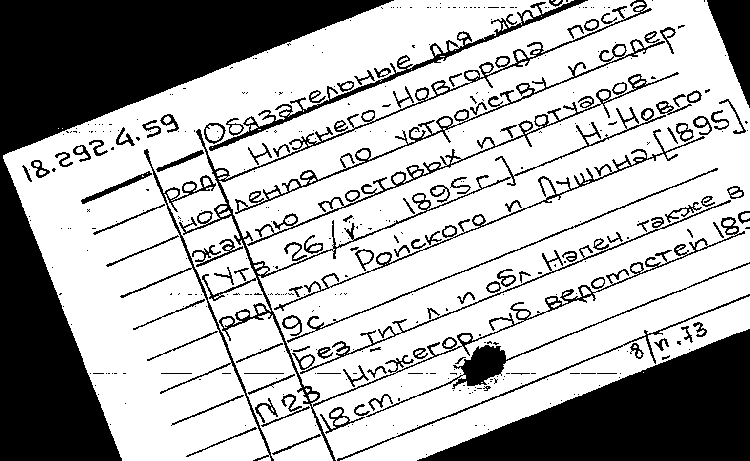 18.292.4.59
Обязательные для жите
рода Нижнего-Новгорода поста
новления по устройству и содер-
жанию мостовых и тротуаров.
[Утв. 26/V. 1895 г.]. Н.-Новго-
род, тип. Ройского и Душина, [1895].
9 с.
Без тит. л. и обл. Напеч. также в
Нижегор. губ. ведомостей 189
N 23
18 ст.
8/VI.73